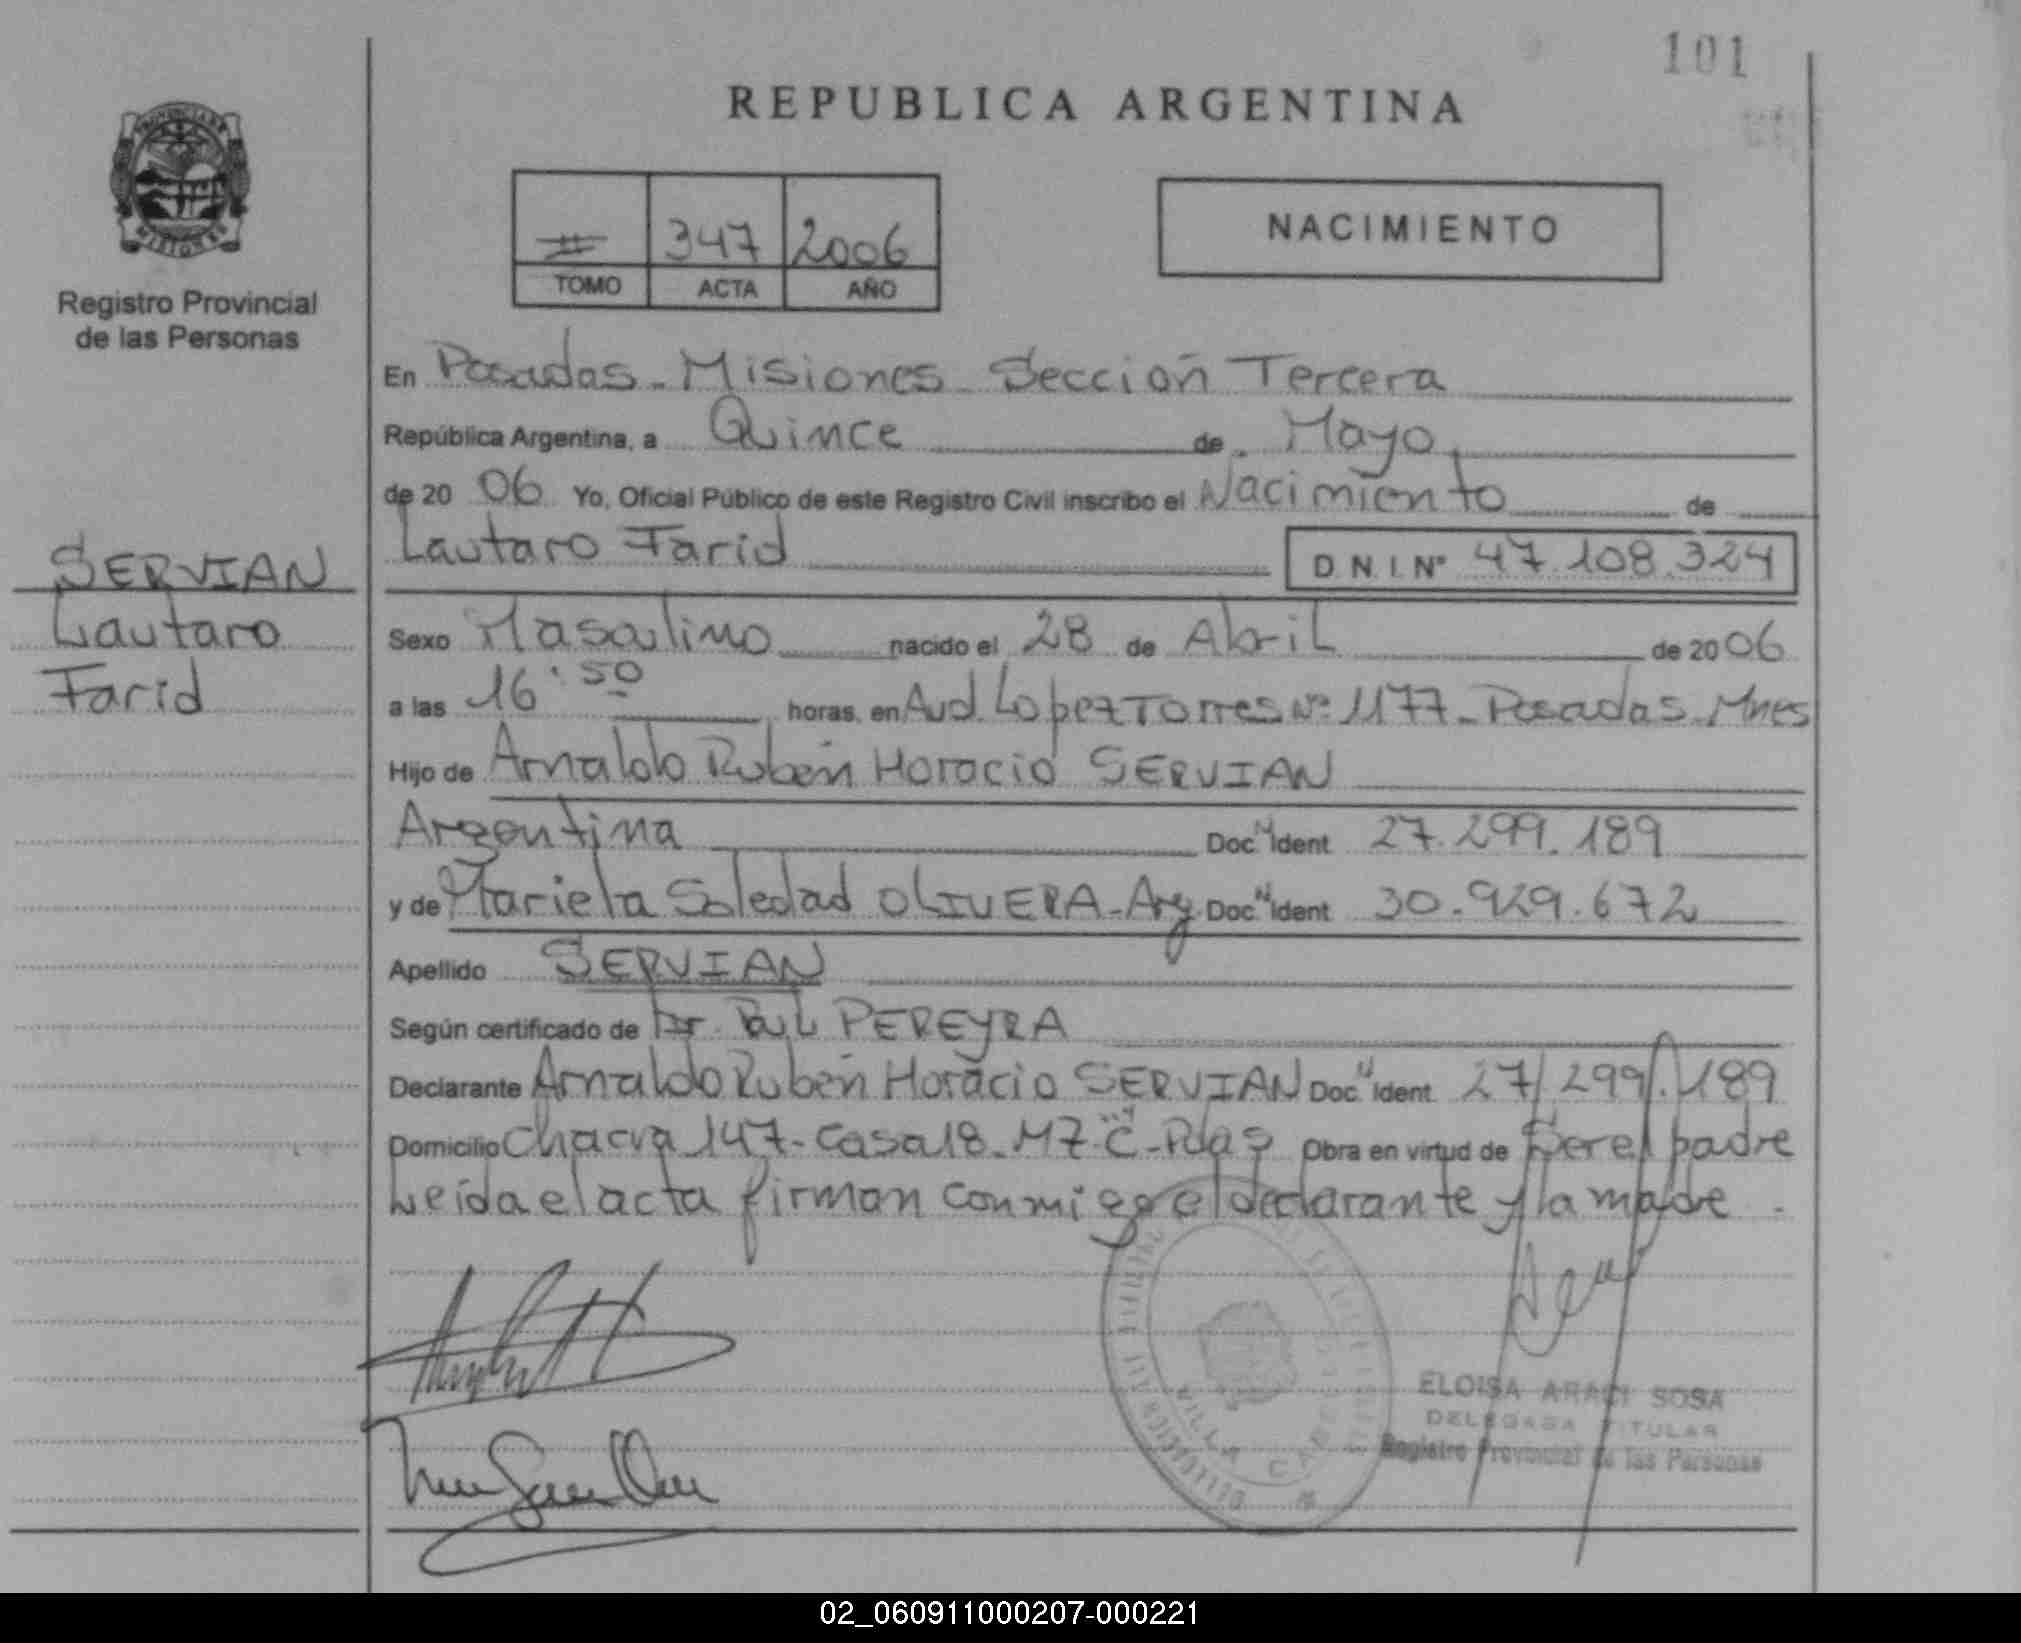 101
REPUBLICA ARGENTINA
PROVINCIA DE MISIONES
Registro Provincial
de las Personas
347 2006
TOMO ACTA AÑO
NACIMIENTO
En Posadas - Misiones - Sección Tercera
República Argentina, a Quince de Mayo
de 20 06 Yo, Oficial Público de este Registro Civil inscribo el Nacimiento de
Lautaro Farid D.N.I.Nº 47.108.324
SERVIAN
Lautaro
Farid
Sexo Masculino nacido el 28 de Abril de 20 06
a las 16:50 horas, en Avd. Lopez Torres Nº 1177 - Posadas - Mnes
Hijo de Arnaldo Rubén Horacio SERVIAN
Argentina Doc. Ident 27.299.189
y de Mariela Soledad OLIVERA - Arg. Doc. Ident 30.929.672
Apellido SERVIAN
Según certificado de Dr. PEREYRA
Declarante Arnaldo Rubén Horacio SERVIAN Doc. Ident. 27/299/.189
Domicilio Chacra 147 - Casa 18 - MZ "C" - Pdas Obra en virtud de Ser el padre
Leída el acta firman conmigo el declarante y la madre.
VILLA CABELLO
ELOISA ARACI SOSA
DELEGADA TITULAR
Registro Provincial de las Personas
02_060911000207-000221